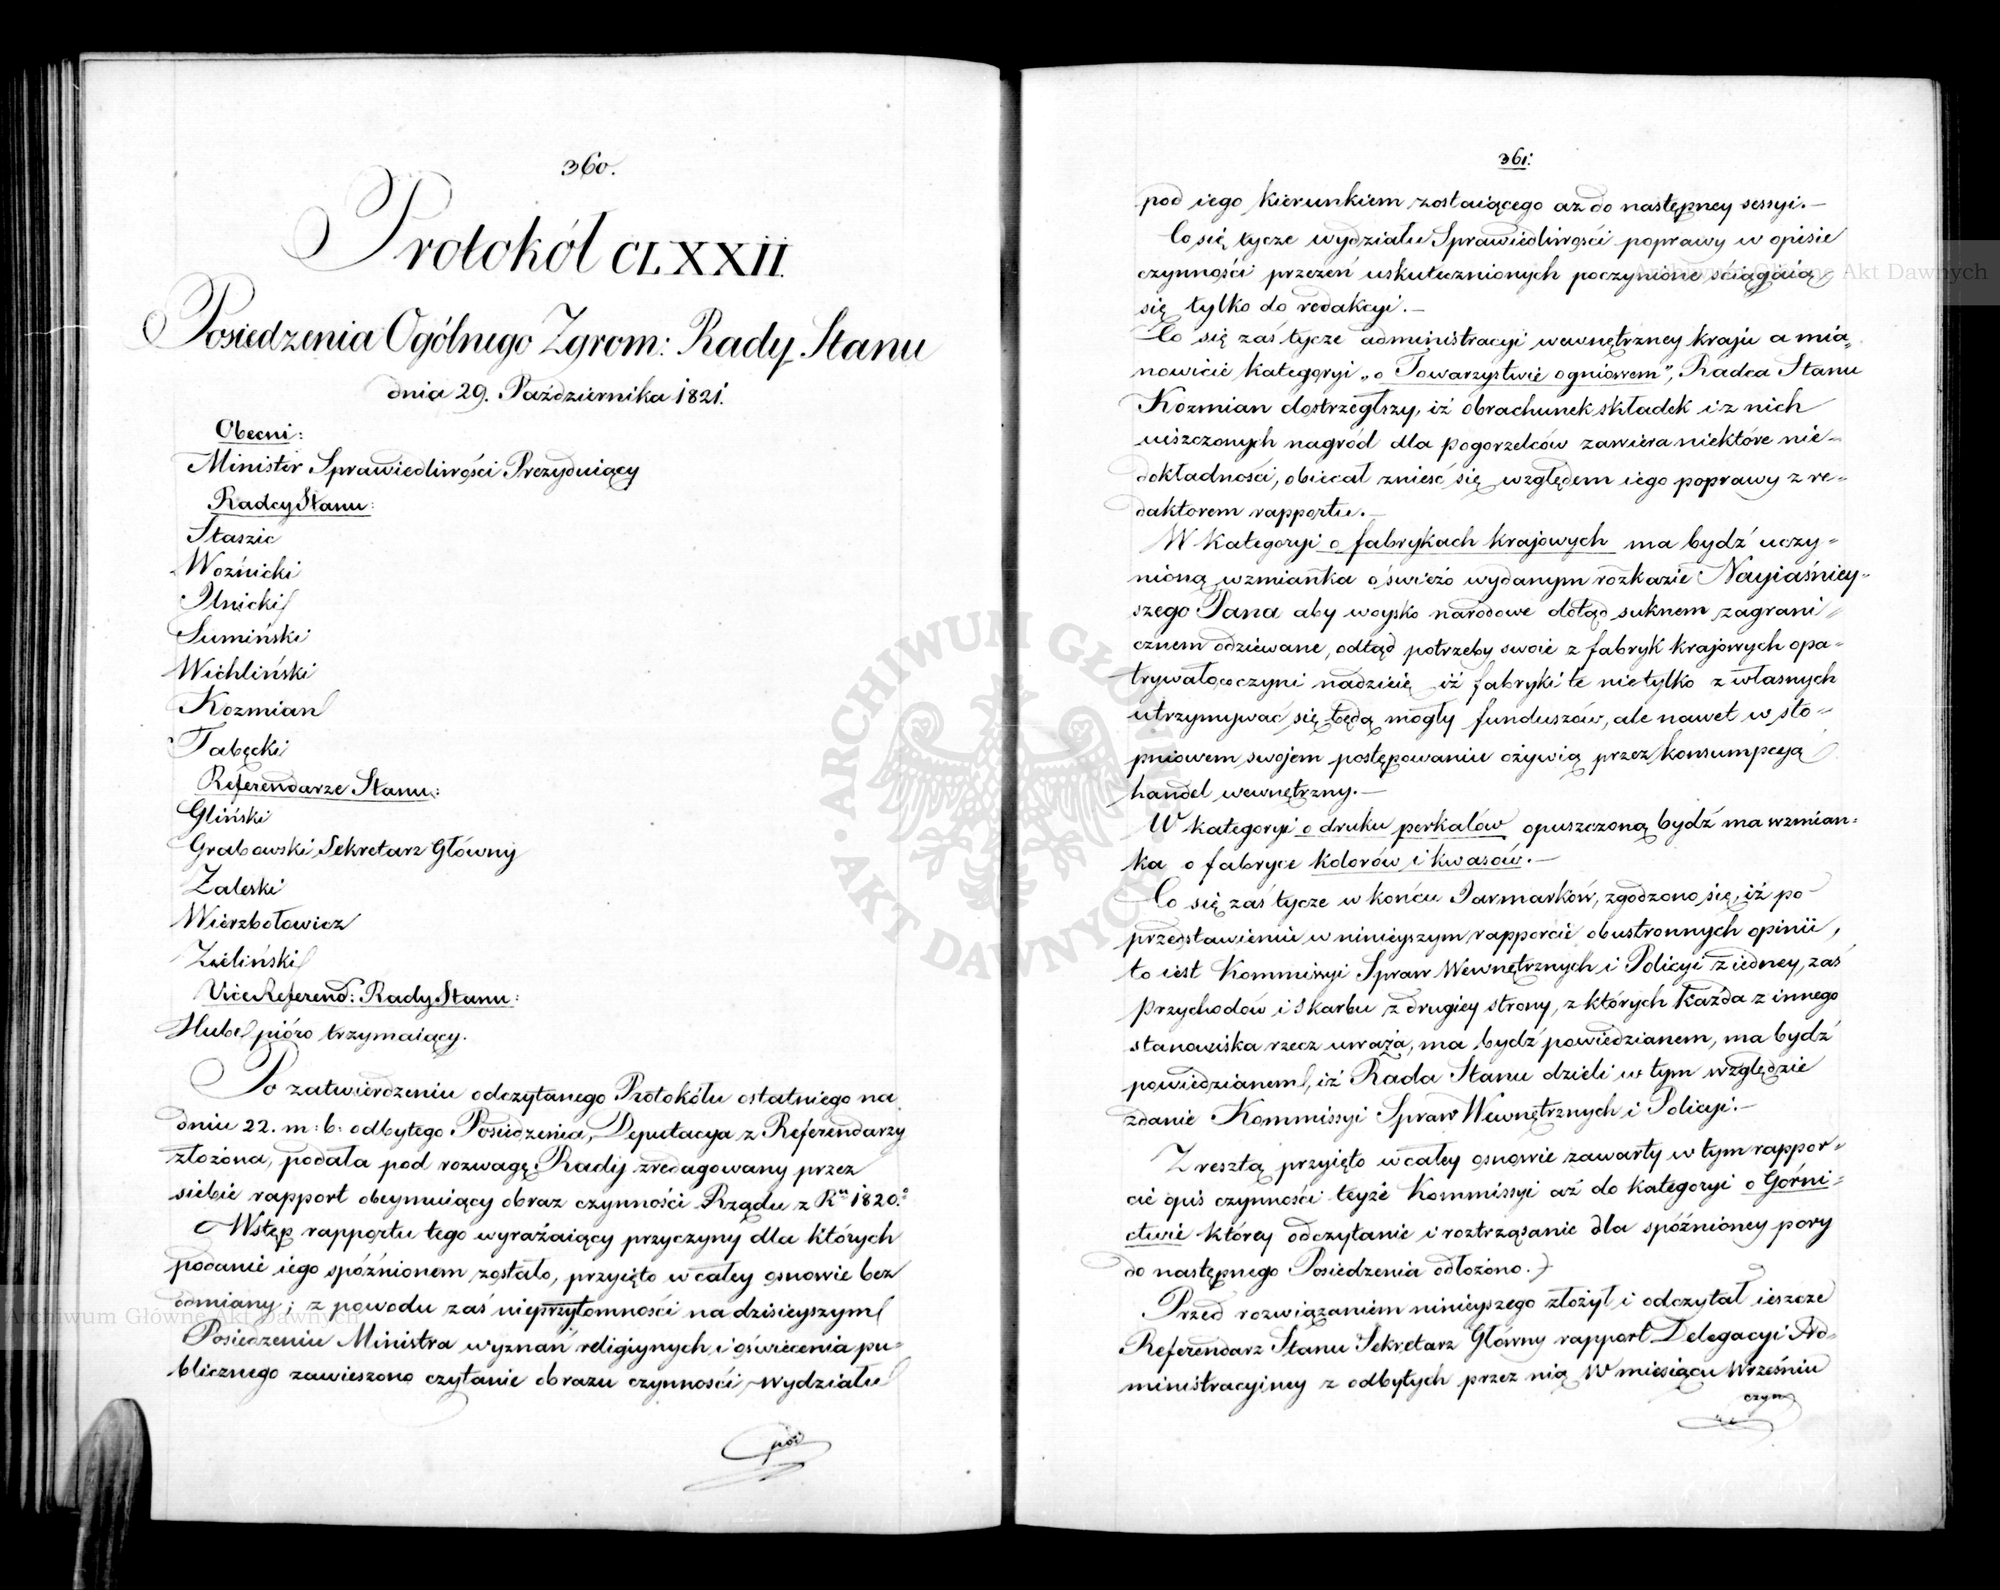 360.
Protokół CLXXII.
Posiedzenia Ogólnego Zgrom: Rady Stanu
dnia 29. Października 1821.
Obecni:
Minister Sprawiedliwości Prezyduiący
Radcy Stanu:
Staszic
Woźnicki
Ilnicki
Sumiński
Wichliński
Kozmian
Tabęcki
Referendarze Stanu:
Gliński
Grabowski Sekretarz Główny
Zaleski
Wierzbołowicz
Zieliński
ViceReferend: Rady Stanu:
Hube pióro trzymaiący.
Po zatwierdzeniu odczytanego Protokółu ostatniego na
dniu 22. m: b: odbytego Posiedzenia, Deputacya z Referendarzy
złożona, podała pod rozwagę Rady zredagowany przez
siebie rapport obeymuiący obraz czynności Rządu z Ru 1820.
Wstęp rapportu tego wyrażaiący przyczyny dla których
podanie iego spóźnionem zostało, przyięto w całey osnowie bez
odmiany; z powodu zaś nieprzytomności na dzisieyszym
Posiedzeniu Ministra wyznań religiynych i oświecenia pu-
blicznego zawieszono czytanie obrazu czynności wydziału
pod
361.
pod iego kierunkiem zostaiącego aż do następney sessyi.—
Co się tycze wydziału Sprawiedliwości poprawy w opisie
czynności przezeń uskutecznionych poczynione ściągaią
się tylko do redakcyi.—
Co się zaś tycze administracyi wewnętrzney kraju a mia-
nowicie kategoryi „o Towarzystwie ogniowem", Radca Stanu
Kozmian dostrzegłszy, iż obrachunek składek i z nich
uiszczonych nagród dla pogorzelców zawiera niektóre nie-
dokładności, obiecał znieść się względem iego poprawy z re-
daktorem rapportu.—
W kategoryi o fabrykach krajowych ma bydź uczy-
nioną wzmianka o świeżo wydanym rozkazie Nayiaśniey-
szego Pana aby woysko narodowe dotąd suknem zagrani-
cznem odziewane, odtąd potrzeby swoie z fabryk krajowych opa-
trywało, co czyni nadzieię iż fabryki te nie tylko z własnych
utrzymywać się będą mogły funduszów, ale nawet w sto-
pniowem swojem postępowaniu ożywią przez konsumpcyą
handel wewnętrzny.—
W kategoryi o druku perkalów opuszczoną bydź ma wzmian-
ka o fabryce kolorów i kwasów.—
Co się zaś tycze w końcu Jarmarków, zgodzono się, iż po
przedstawieniu w ninieyszym rapporcie obustronnych opinii,
to iest Kommissyi Spraw Wewnętrznych i Policyi z iedney, zaś
Przychodów i Skarbu z drugiey strony, z których każda z innego
stanowiska rzecz uważa, ma bydź powiedzianem, ma bydź
powiedzianem, iż Rada Stanu dzieli w tym względzie
zdanie Kommissyi Spraw Wewnętrznych i Policyi.—
Z resztą przyięto w całey osnowie zawarty w tym rappor-
cie opis czynności teyże Kommissyi aż do kategoryi o Górni-
ctwie którey odczytanie i roztrząsanie dla spóźnioney pory
do następnego Posiedzenia odłożono.
Przed rozwiązaniem ninieyszego złożył i odczytał ieszcze
Referendarz Stanu Sekretarz Główny rapport Delegacyi Ad-
ministracyiney z odbytych przez nią w miesiącu Wrześniu
czyn
Archiwum Główne Akt Dawnych
Archiwum Główne Akt Dawnych
ARCHIWUM GŁÓWNE AKT DAWNYCH